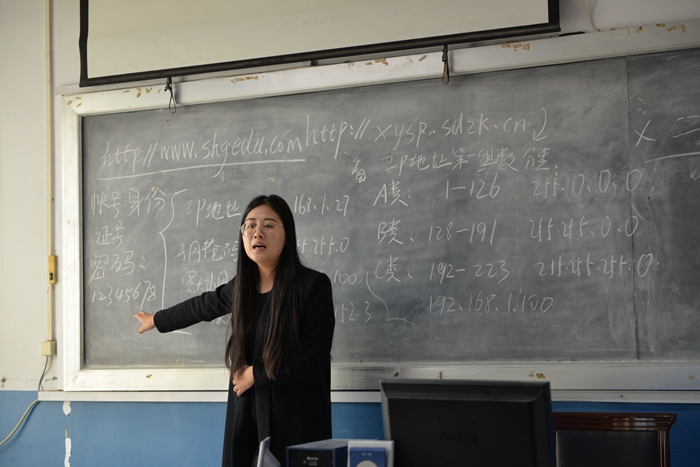 http://www.shgedu.com http://xysp.sdzk.cn
备 IP地址第一组数分类
帐号:身份
证号
密码:
12345678
IP地址
168.1.27
255.0
100
A类: 1-126 255.0.0.0
B类: 128-191 255.255.0.0
C类: 192-223 255.255.255.0
192.168.1.100
ASUS